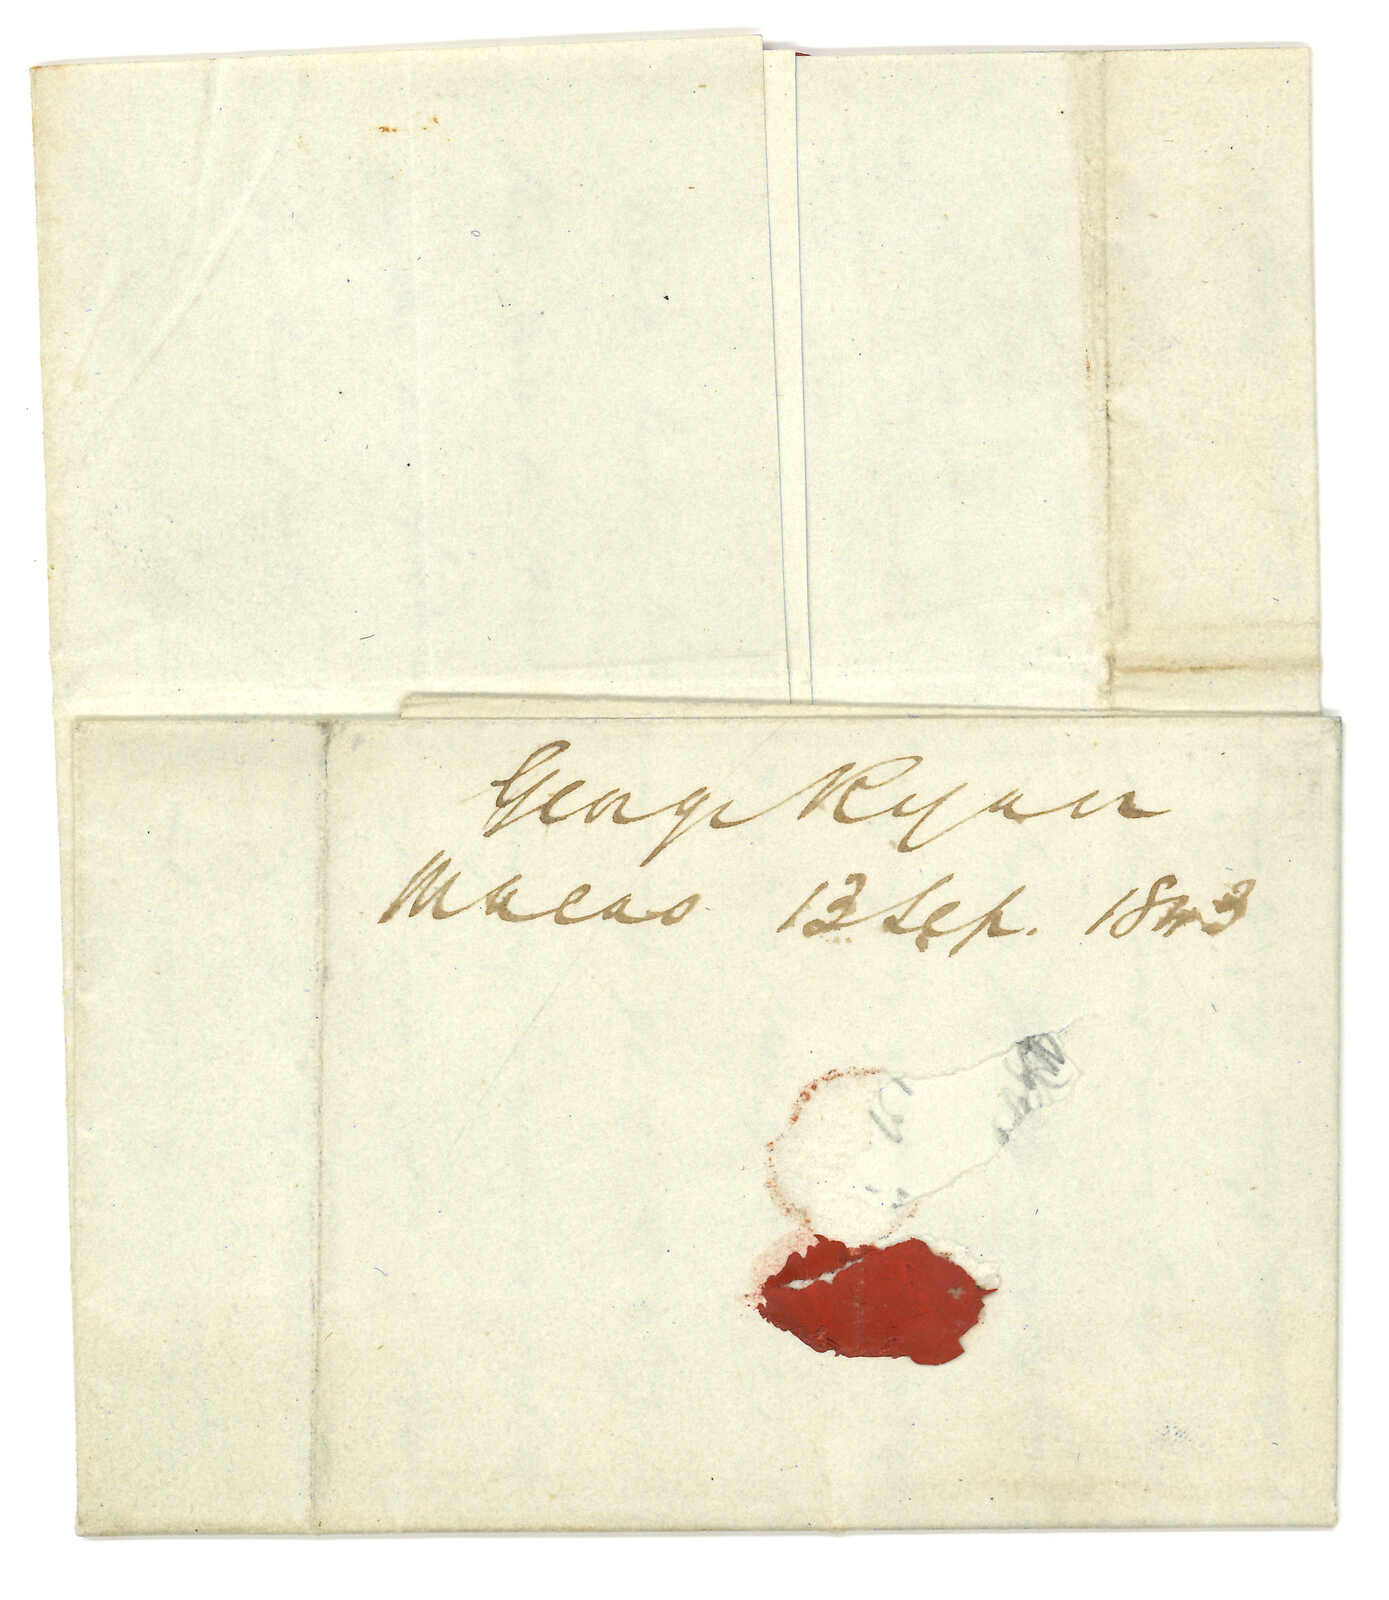 George Ryan
Macao 13 Sep. 1843